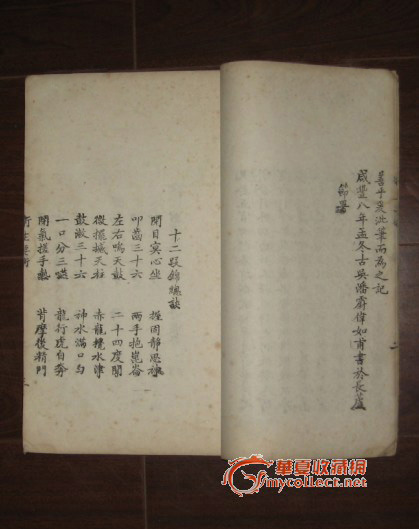 善乎爰泚筆而為之記
咸豐八年孟冬古吳潘霨偉如甫書於長蘆
節署
十二段錦總訣
閉目冥心坐 握固靜思神
叩齒三十六 兩手抱崑崙
左右鳴天鼓 二十四度聞
微擺撼天柱 赤龍攪水津
鼓漱三十六 神水滿口勻
一口分三嚥 龍行虎自奔
閉氣搓手熱 背摩後精門
華夏收藏網
mycollect.net